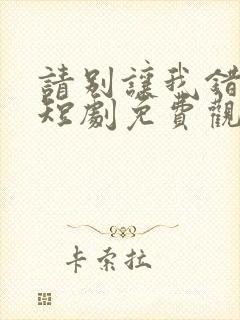 請別讓我錯
短劇免費觀
卡索拉